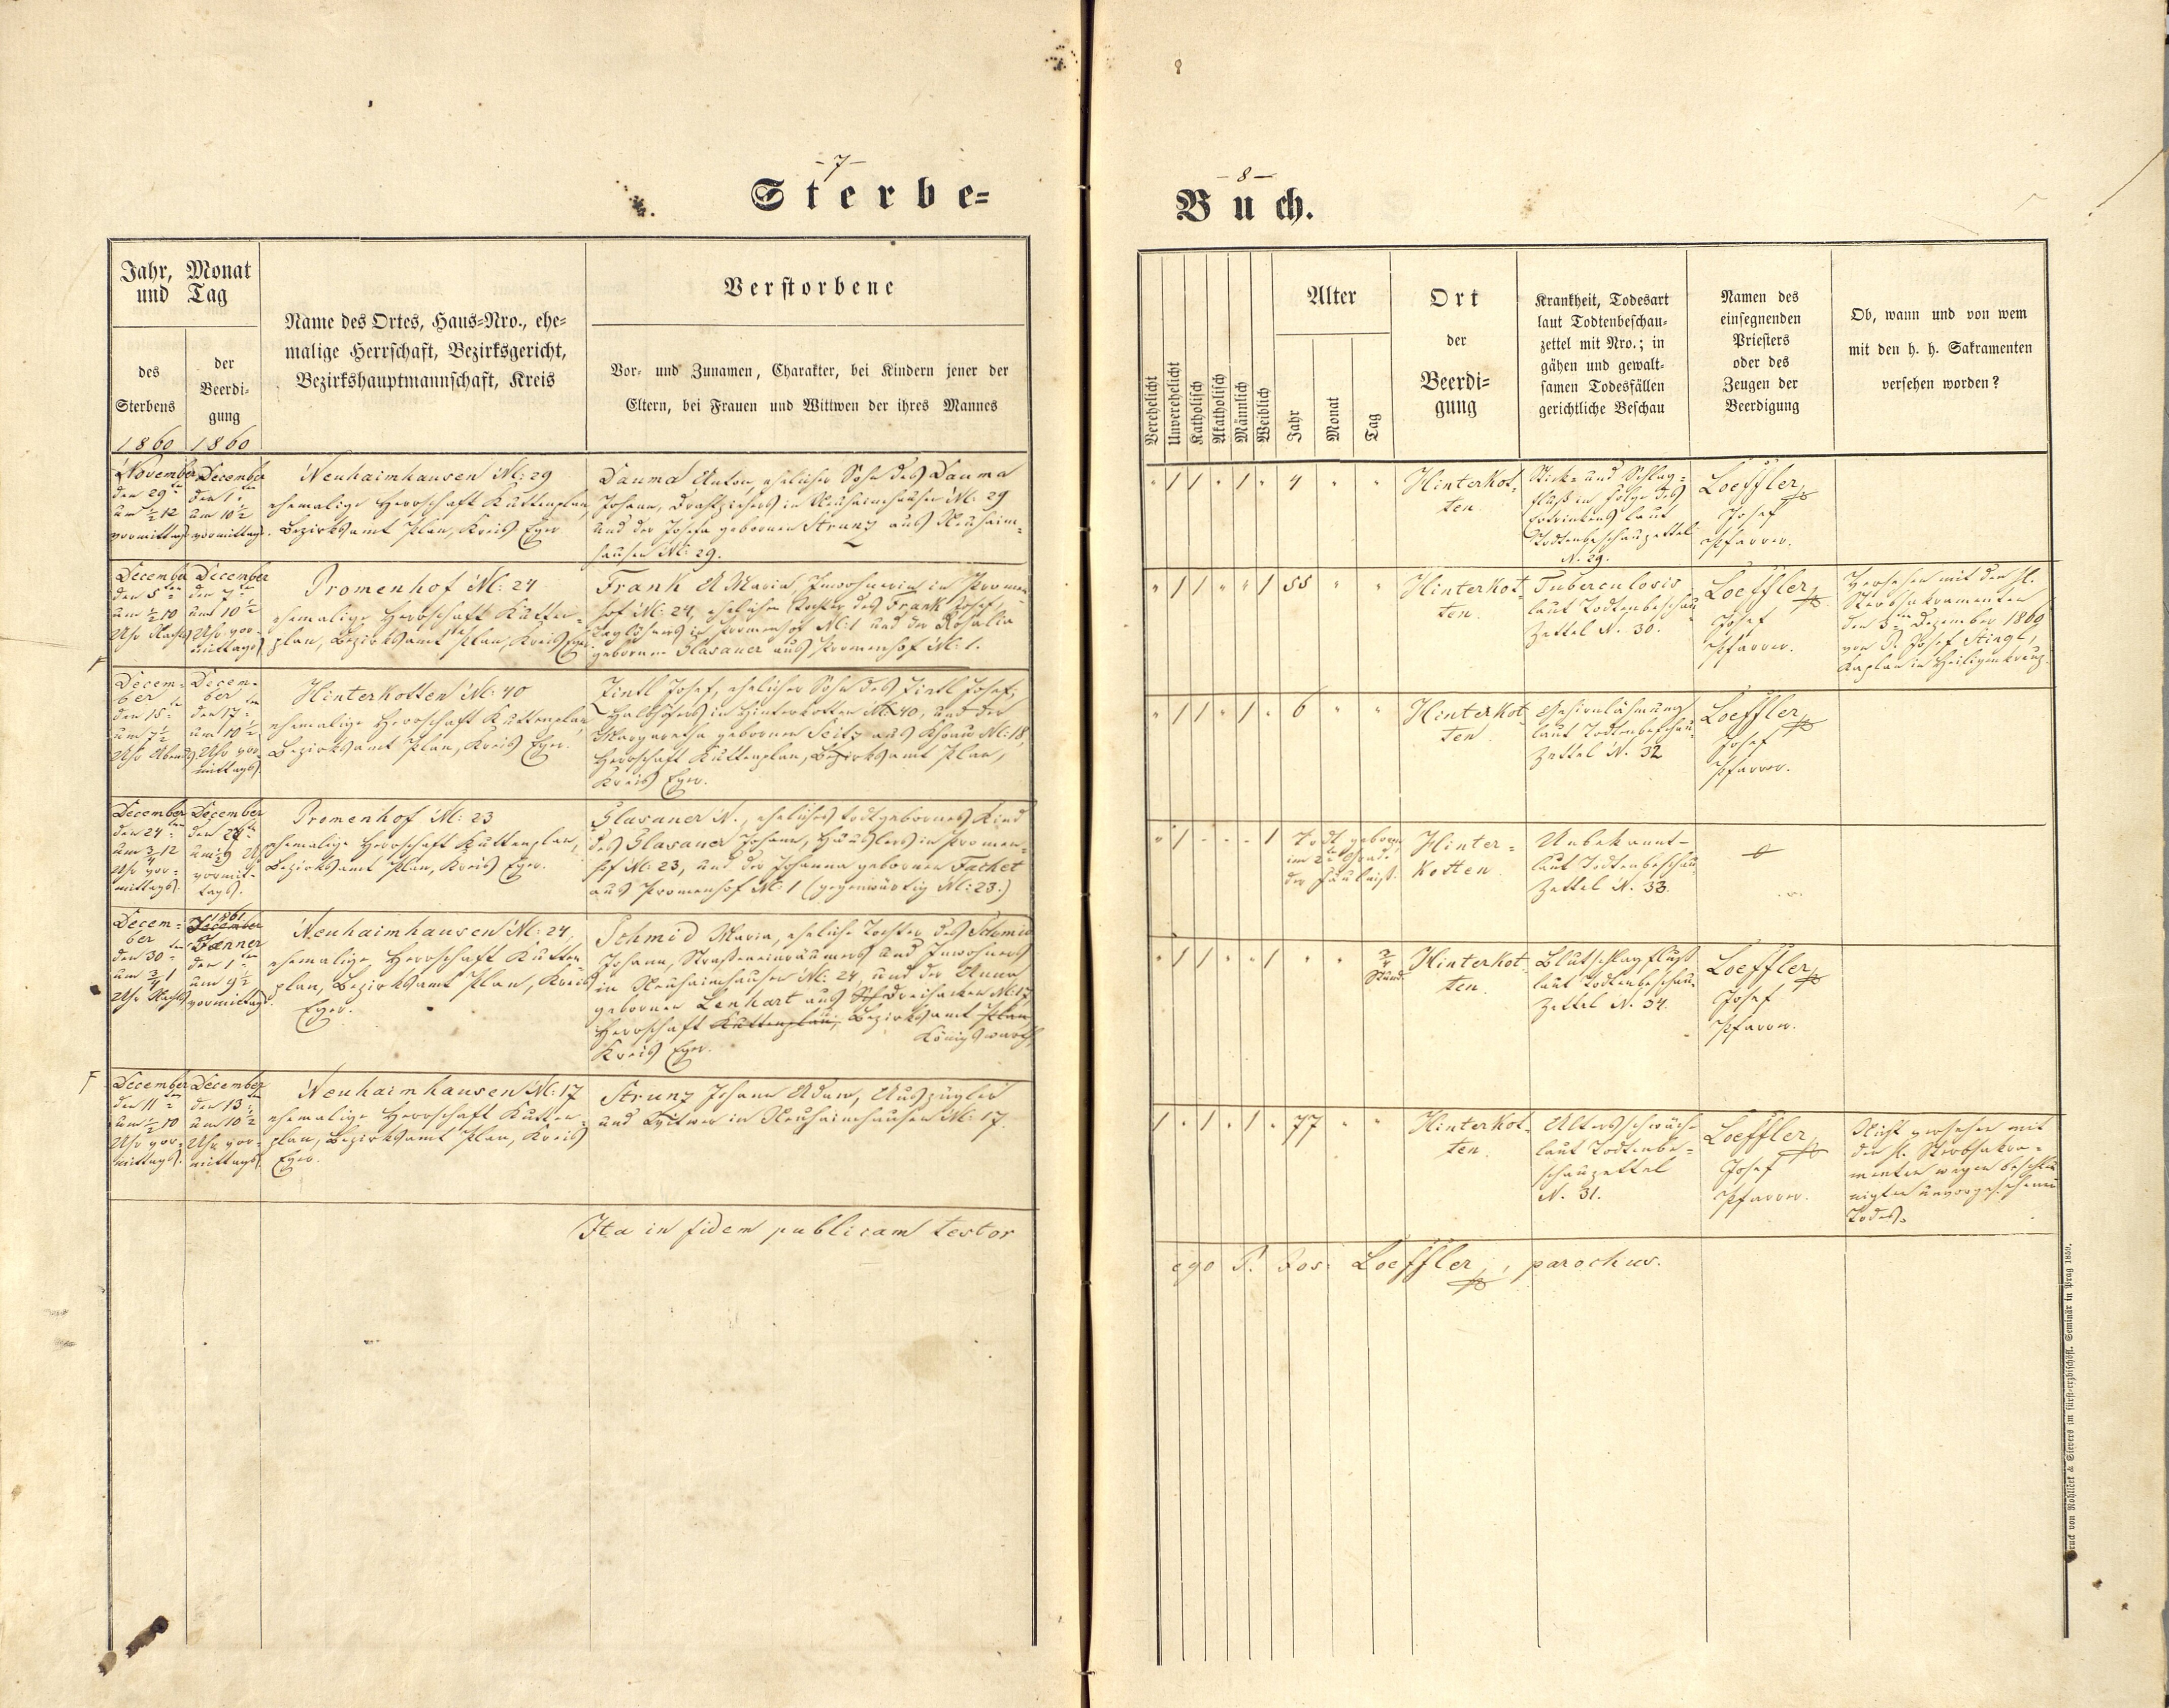 - 7 -
Sterbe=
Jahr, Monat
und Tag
des
Sterbens
1860
der
Beerdi-
gung
1860
Name des Ortes, Haus=Nro., ehe=
malige Herrschaft, Bezirksgericht,
Bezirkshauptmannschaft, Kreis
Verstorbene
Vor- und Zunamen, Charakter, bei Kindern jener der
Eltern, bei Frauen und Wittwen der ihres Mannes
November
den 29ten
um ½12
vormittags
December
den 1ten
um 10½
vormittags.
Neuhaimhausen N: 29
ehemalige Herrschaft Kuttenplan,
Bezirksamt Plan, Kreis Eger
Dauma Anton, ehelicher Sohn des Dauma
Johann, Drahtziehers in Neuhaimhausen N: 29
und der Josefa gebornen Strunz aus Neuhaim-
hausen N: 29.
December
den 5ten
um ½10
Uhr Nachts
December
den 7ten
um 10½
Uhr vor-
mittags
Promenhof N: 24
ehemalige Herrschaft Kutten-
plan, Bezirksamt Plan, Kreis Eger
Frank A Maria, Inwohnerin in Promen-
hof N: 24, eheliche Tochter des Frank Josef
Taglöhners in Promenhof N: 1 und der Rosalia
gebornen Glasauer aus Promenhof N: 1.
Decem-
ber
den 15ten
um 7½
Uhr Abends
Decem-
ber
den 17ten
um 10½
Uhr vor-
mittags
Hinterkotten N: 40
ehemalige Herrschaft Kuttenplan,
Bezirksamt Plan, Kreis Eger.
Zintl Josef, ehelicher Sohn des Zintl Josef,
Halbhöfers in Hinterkotten N: 40, und der
Margaretha gebornen Seitz aus Khoau N: 18,
Herrschaft Kuttenplan, Bezirksamt Plan,
Kreis Eger.
December
den 24ten
um ¾12
Uhr vor-
mittags.
December
um 9
vormit-
tags.
Promenhof N: 23
ehemalige Herrschaft Kuttenplan,
Bezirksamt Plan, Kreis Eger.
Glasauer N., eheliches todtgebornes Kind
des Glasauer Johann, Häuslers in Promen-
hof N: 23, und der Johanna gebornen Fachet
aus Promenhof N: 1 (gegenwärtig N: 23.)
Decem-
ber
den 30ten
um ¾1
Uhr Nachts
1861
December
Jænner
den 1ten
um 9½
vormittags.
Neuhaimhausen N: 24,
ehemalige Herrschaft Kutten-
plan, Bezirksamt Plan, Kreis
Eger.
Schmid Maria, eheliche Tochter des Schmid
Johann, Straßeneinräumers und Inwohners
in Neuhaimhausen N: 24, und der Anna
gebornen Lenhart aus Dreihacken N: 17,
Herrschaft Kuttenplan, Bezirksamt Plan
Königswarth,
Kreis Eger.
F
December
den 11ten
um ½10
Uhr vor-
mittags.
December
den 13ten
um 10½
Uhr vor-
mittags.
Neuhaimhausen N: 17
ehemalige Herrschaft Kutten-
plan, Bezirksamt Plan, Kreis
Eger.
Strunz Johann Adam, Auszügler
und Witwer in Neuhaimhausen N: 17.
Ita in fidem publicam testor
- 8 -
Buch.
Verehelicht
Unverehelicht
Katholisch
Akatholisch
Männlich
Weiblich
Alter
Jahr
Monat
Tag
Ort
der
Beerdi=
gung
Krankheit, Todesart
laut Todtenbeschau-
zettel mit Nro.; in
gähen und gewalt-
samen Todesfällen
gerichtliche Beschau
Namen des
einsegnenden
Priesters
oder des
Zeugen der
Beerdigung
Ob, wann und von wem
mit den h. h. Sakramenten
versehen worden?
" 1 1 " 1 " 4 " "
Hinterkot-
ten
Stick- und Schlag-
fluß in Folge des
Ertrinkens laut
Todtenbeschauzettel
N. 29.
Loeffler
Josef
Pfarrer.
" 1 1 " " 1 55 " "
Hinterkot-
ten.
Tuberculosis
laut Todtenbeschau-
Zettel N. 30.
Loeffler
Josef
Pfarrer.
Versehen mit den h.
Sterbsakramenten
den 3ten Dezember 1860
von P. Josef Stingl,
Kaplan in Heiligenkreuz.
" 1 1 " 1 " 6 " "
Hinterkot-
ten
Gehirnlähmung
laut Todtenbeschau-
Zettel N. 32
Loeffler
Josef
Pfarrer.
" 1 - - - 1
Todt geboren
im 2ten Grade
der Fäulniß.
Hinter-
kotten
Unbekannt-
laut Todtenbeschau-
Zettel N. 33.
" 1 1 " " 1 " " ¾
Stund
Hinterkot-
ten.
Blutschlagfluß
laut Todtenbeschau-
Zettel N. 34.
Loeffler
Josef
Pfarrer.
1 " 1 " 1 " 77 " "
Hinterkot-
ten.
Altersschwäche
laut Todtenbe-
schauzettel
N. 31.
Loeffler
Josef
Pfarrer.
Nicht versehen mit
den h. Sterbsakra-
menten wegen beschleu-
nigten unvorgesehenen
Todes.
ego P. Jos. Loeffler, parochus.
Druck von Rohliček & Sievers im fürst-erzbischöfl. Seminär in Prag 1859.